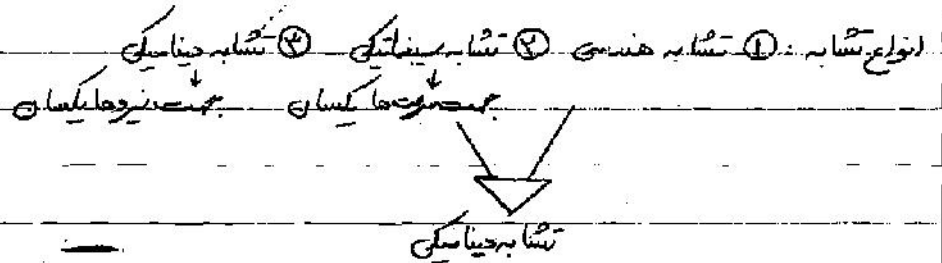 انواع تشابه : ① تشابه هندسی ② تشابه سینماتیکی ③ تشابه دینامیکی
جهت سرعت‌ها یکسان جهت نیروها یکسان
تشابه دینامیکی